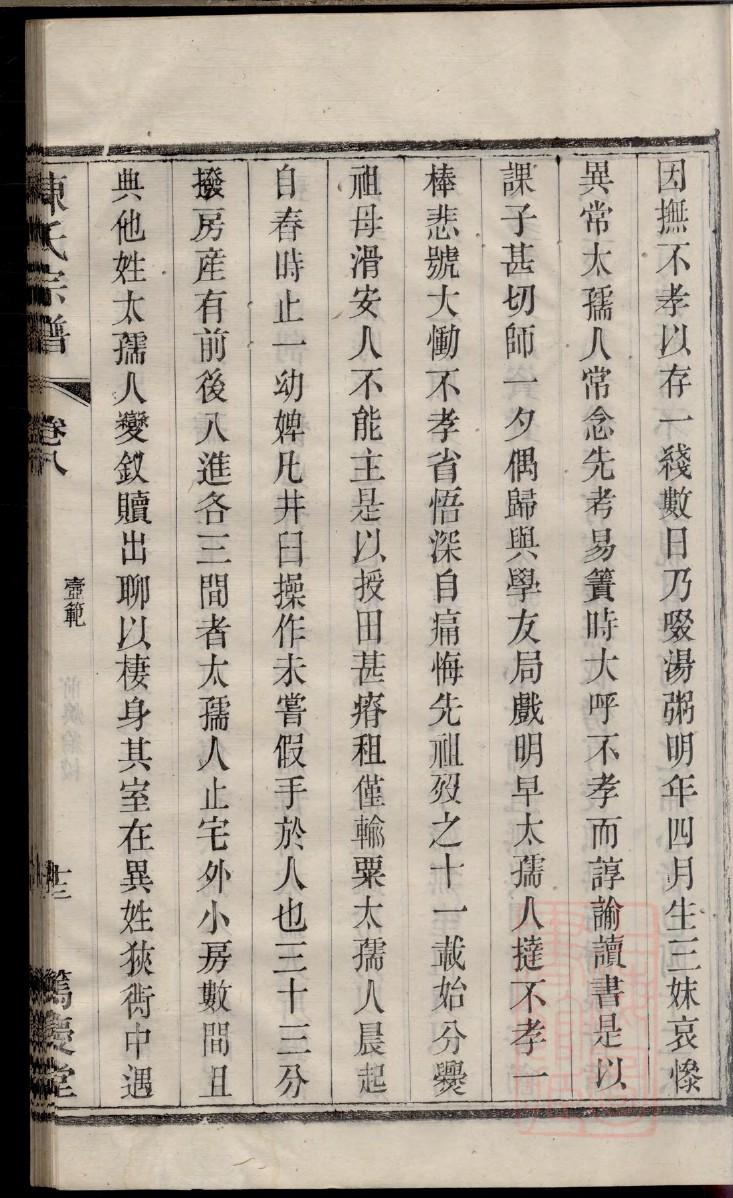 因撫不孝以存一綫數日乃啜湯粥明年四月生三妹哀慘
異常太孺人常念先考易簀時大呼不孝而諄諭讀書是以
課子甚切師一夕偶歸與學友局戲明早太孺人撻不孝一
棒悲號大慟不孝省悟深自痛悔先祖歿之十一載始分爨
祖母滑安人不能主是以授田甚瘠租僅輸粟太孺人晨起
自舂時止一幼婢凡井臼操作未嘗假手於人也三十三分
撥房産有前後八進各三間者太孺人止宅外小房數間且
典他姓太孺人變釵贖出聊以棲身其室在異姓狹衖中遇
陳氏宗譜
卷八
壼範
十三
篤慶堂